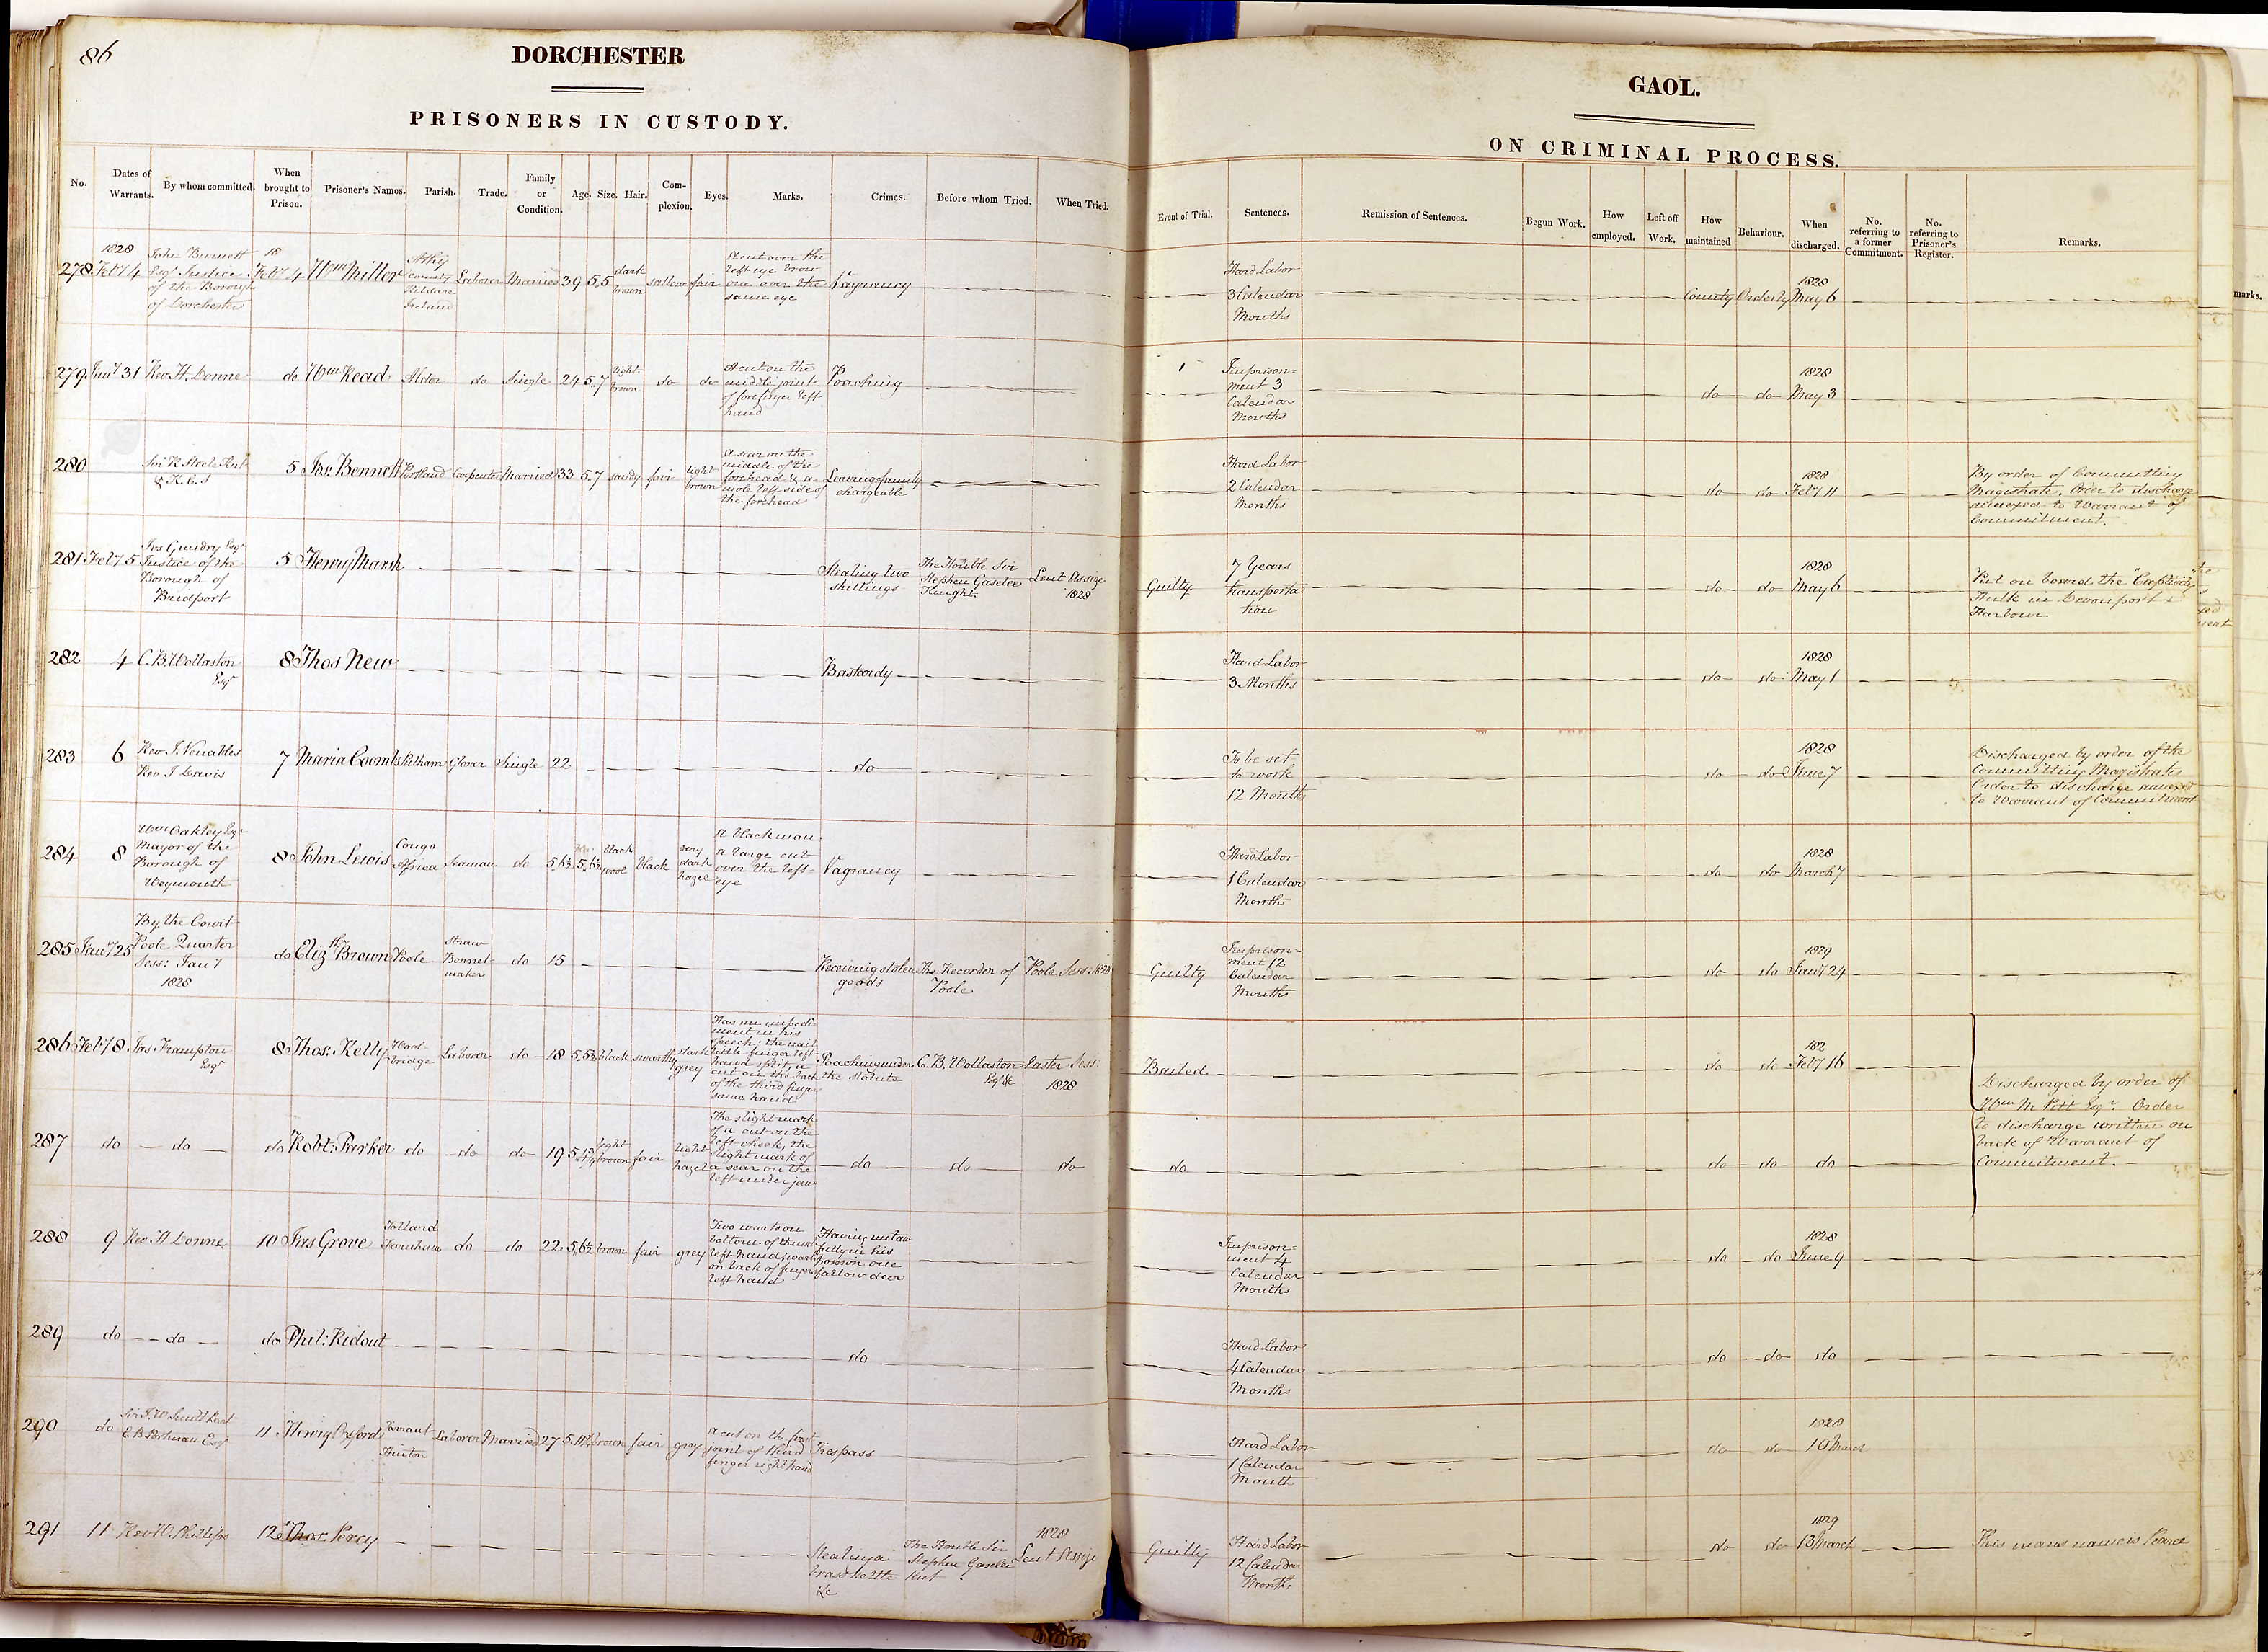 86
DORCHESTER
PRISONERS IN CUSTODY.
GAOL.
ON CRIMINAL PROCESS.
No. Dates of Warrants. By whom committed. When brought to Prison. Prisoner's Names. Parish. Trade. Family or Condition. Age. Size. Hair. Complexion. Eyes. Marks. Crimes. Before whom Tried. When Tried. Event of Trial. Sentences. Remission of Sentences. Begun Work. How employed. Left off Work. How maintained Behaviour. When discharged. No. referring to a former Commitment. No. referring to Prisoner's Register. Remarks.
278 1828 Feby 4 John Burnett Esqr Justice of the Borough of Dorchester 18 Feby 4 Wm Miller Athy County Kildare Ireland Laborer Married 39 5,,5 dark brown sallow fair A cut over the left eye brow one over the same eye Vagrancy Hard Labor 3 Calendar Months County Orderly 1828 May 6
279 Jany 31 Rev H. Donne do Wm Read Alder do Single 24 5,,7 light brown do do A cut on the middle joint of forefinger left hand Poaching Imprisonment 3 Calendar Months do do 1828 May 3
280 Sir R Steele & K.C.S 5 Jas. Bennett Portland Carpenter Married 33 5,,7 sandy fair light brown A scar on the middle of the forehead & a mole left side of the forehead Leaving family chargeable Hard Labor 2 Calendar Months do do 1828 Feby 11 By order of Committing Magistrate. Order to discharge annexed to Warrant of Commitment.
281 Feby 5 Jos Gundry Esqr Justice of the Borough of Bridport 5 Henry Marsh Stealing two shillings The Honble Sir Stephen Gaselee Knight. Lent Assize 1828 Guilty. 7 Years transportation do do 1828 May 6 Put on board the "Captivity" Hulk in Devonport Harbour
282 4 C.B. Wollaston Esqr 8 Thos New Bastardy Hard Labor 3 Months do do 1828 May 1
283 6 Rev J. Venables Rev J Davis 7 Maria Coombs Glover Single 22 do To be set to work 12 Months do do 1828 June 7 Discharged by order of the Committing Magistrates Order to discharge annexed to Warrant of Commitment
284 8 Wm Oakley Esqr Mayor of the Borough of Weymouth 8 John Lewis Congo Africa Seaman do 5,,6½ 5,,6½ black wool black very dark hazel A black man a large cut over the left eye Vagrancy Hard Labor 1 Calendar Month do do 1828 March 7
285 Jany 25 By the Court Poole Quarter Sess: Jany 1828 do Elizth Brown Poole Straw Bonnet maker do 15 Receiving stolen goods The Recorder of Poole Poole Sess. 1828 Guilty Imprisonment 12 Calendar Months do do 1829 Jany 24
286 Feby 8 Jas Frampton Esqr 8 Thos: Kelly Woolbridge Laborer do 18 5,,5½ black swarthy dark grey Has an impediment in his speech, the nail little finger left hand split, a cut on the back of the third finger same hand Poaching under the Statute C.B. Wollaston Esqr &c Easter Sess. 1828 Bailed do do 182 Feby 16
287 do do do Robt: Parker do do do 19 5,, light brown fair light hazel The slight mark of a cut on the left cheek, the slight mark of a scar on the left under jaw do do do do do do do Discharged by order of Wm M Pitt Esqr. Order to discharge written on back of Warrant of Commitment.
288 9 Rev H Donne 10 Jas Grove Tollard Farnham do do 22 5,,6½ brown fair grey Two warts on bottom of thumb left hand, wart on back of finger left hand Having unlawfully in his possion one fallow deer Imprisonment 4 Calendar Months do do 1828 June 9
289 do do do Phil: Ridout do Hard Labor 4 Calendar Months do do do
290 do Sir J.W Smith Bart E B Portman Esqr 11 Henry Oxford Tarrant Hinton Laborer Married 27 brown fair grey A cut on the first joint of third finger right hand Trespass Hard Labor 1 Calendar Month do do 1828 10 March
291 11 Rev W. Phillips 12 Thos. Percy Stealing a brass kettle &c The Honble Sir Stephen Gaselee Knt 1828 Lent Assize Guilty Hard Labor 12 Calendar Months do do 1829 13 March This mans name is Pearce
marks.